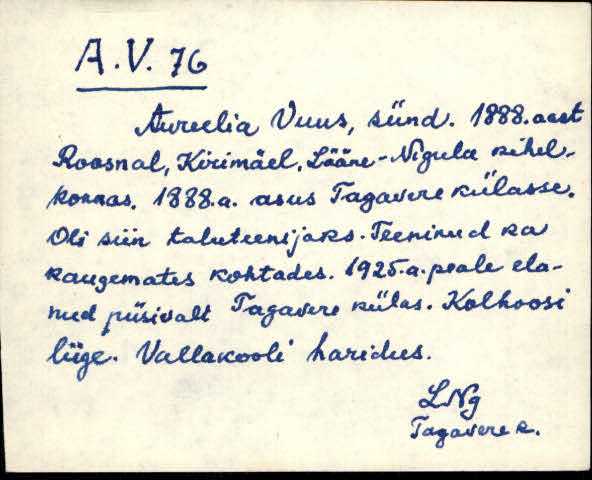 A.V. 76
Aureelia Vuus, sünd. 1888. aast
Roosnal, Kirimäel, Lääne-Nigula kihel-
konnas. 1888.a. asus Tagavere külasse.
Oli siin taluteenijaks. Teeninud ka
kaugemates kohtades. 1925.a. peale ela-
nud püsivalt Tagavere külas. Kolhoosi
liige. Vallakooli haridus.
LNg
Tagavere k.